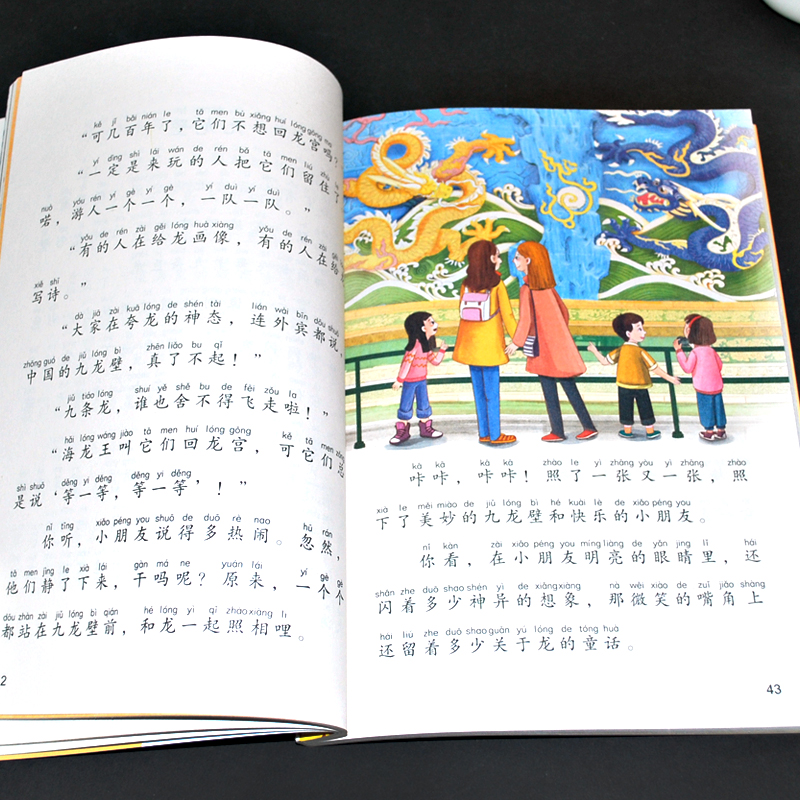 kě jǐ bǎi nián le tā men bù xiǎng huí lóng gōng ma
“可几百年了，它们不想回龙宫吗？
yí dìng shì lái wán de rén bǎ tā men liú zhù
“一定是来玩的人把它们留住了
nuò yóu rén yí gè yí gè yí duì yí duì
喏，游人一个一个，一队一队。”
yǒu de rén zài gěi lóng huà xiàng yǒu de rén zài gěi
“有的人在给龙画像，有的人在给
xiě shī
写诗。”
dà jiā zài kuā lóng de shén tài lián wài bīn dōu shuō
“大家在夸龙的神态，连外宾都说，
zhōng guó de jiǔ lóng bì zhēn liǎo bu qǐ
中国的九龙壁，真了不起！”
jiǔ tiáo lóng shuí yě shě bu de fēi zǒu la
“九条龙，谁也舍不得飞走啦！”
hǎi lóng wáng jiào tā men huí lóng gōng kě tā men
“海龙王叫它们回龙宫，可它们总
shì shuō děng yi děng děng yi děng
是说‘等一等，等一等’！”
nǐ tīng xiǎo péng you shuō de duō rè nao hū rán
你听，小朋友说得多热闹。忽然，
tā men jìng le xià lái gàn má ne yuán lái yí gè
他们静了下来，干吗呢？原来，一个个
dōu zhàn zài jiǔ lóng bì qián hé lóng yì qǐ zhào xiàng li
都站在九龙壁前，和龙一起照相哩。
2
kā kā kā kā zhào le yì zhāng yòu yì zhāng zhào
咔咔，咔咔！照了一张又一张，照
xià le měi miào de jiǔ lóng bì hé kuài lè de xiǎo péng you
下了美妙的九龙壁和快乐的小朋友。
nǐ kàn zài xiǎo péng you míng liàng de yǎn jīng lǐ hái
你看，在小朋友明亮的眼睛里，还
shǎn zhe duō shao shén yì de xiǎng xiàng nà wēi xiào de zuǐ jiǎo shàng
闪着多少神异的想象，那微笑的嘴角上
hái liú zhe duō shao guān yú lóng de tóng huà
还留着多少关于龙的童话。
43